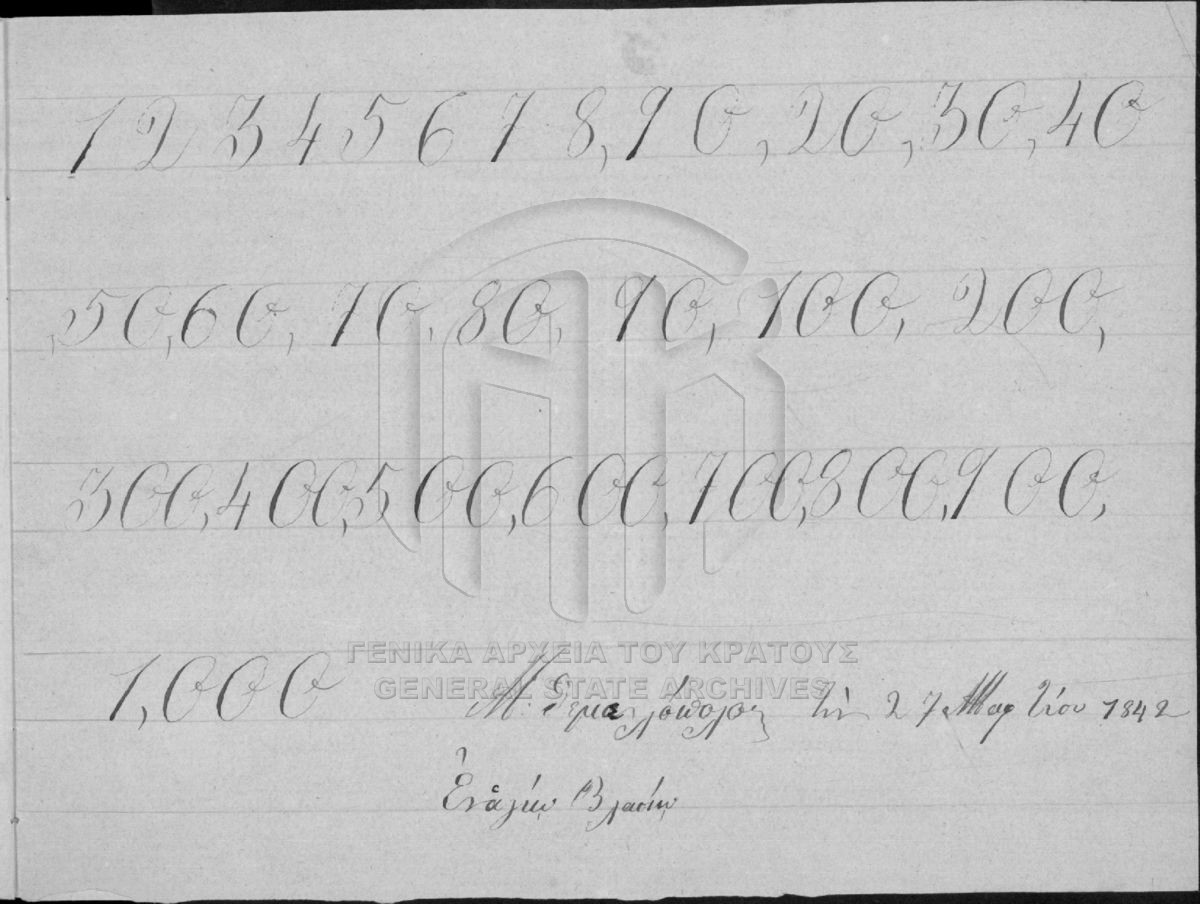 1 2 3 4 5 6 7 8, 9 0, 20, 30, 40
, 50, 60, 70, 80, 90, 100, 200,
300, 400, 500, 600, 700, 800, 900,
ΓΕΝΙΚΑ ΑΡΧΕΙΑ ΤΟΥ ΚΡΑΤΟΥΣ
GENERAL STATE ARCHIVES
1,000 Μ. τὴν 27 Μαρτίου 1842